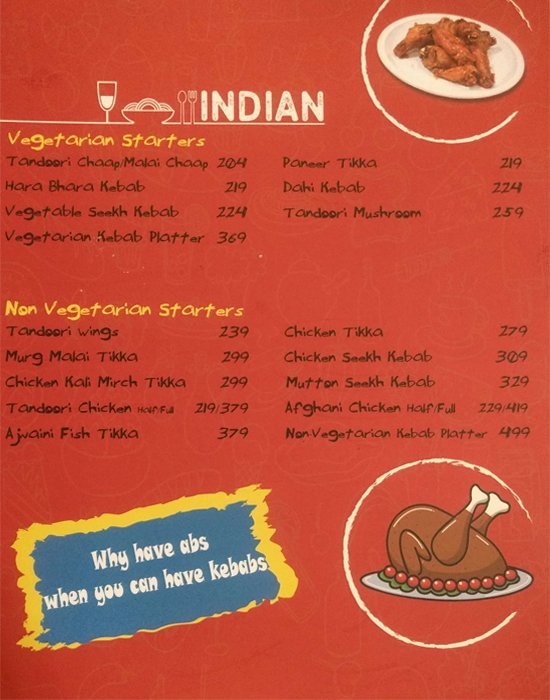 INDIAN
Vegetarian Starters
Tandoori Chaap/Malai Chaap 204
Hara Bhara Kebab 219
Vegetable Seekh Kebab 224
Vegetarian Kebab Platter 369
Paneer Tikka 219
Dahi Kebab 224
Tandoori Mushroom 259
Non Vegetarian Starters
Tandoori wings 239
Murg Malai Tikka 299
Chicken Kali Mirch Tikka 299
Tandoori Chicken Half/Full 219/379
Ajvaini Fish Tikka 379
Chicken Tikka 279
Chicken Seekh Kebab 309
Mutton Seekh Kebab 329
Afghani Chicken Half/Full 229/419
Non-Vegetarian Kebab Platter 499
Why have abs
when you can have kebabs